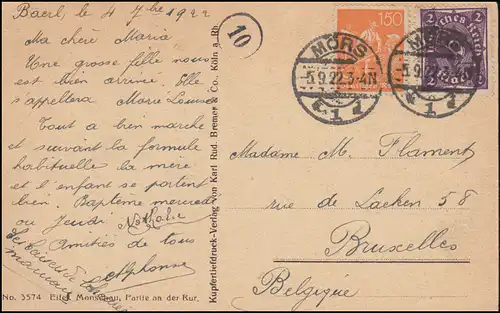 Baerl, le 4 7bre 1922
Ma chère Marie
Une grosse fille nous
est bien arrivée. Elle
s'appellera Marie-Louise
Tout a bien marché
et suivant la formule
habituelle la mère
et l'enfant se portent
bien. Baptême mercredi
ou Jeudi. Nathalie
Amitiés de tous
Alphonse
No. 3574 Eifel Monschau, Partie an der Rur.
Kupfertiefdruck-Verlag von Karl Rud. Bremer & Co., Köln a. Rh.
10
150
2
MÖRS
5.9.22.3-4N
1
Madame M. Flament
rue de Laeken 58
Bruxelles
Belgique